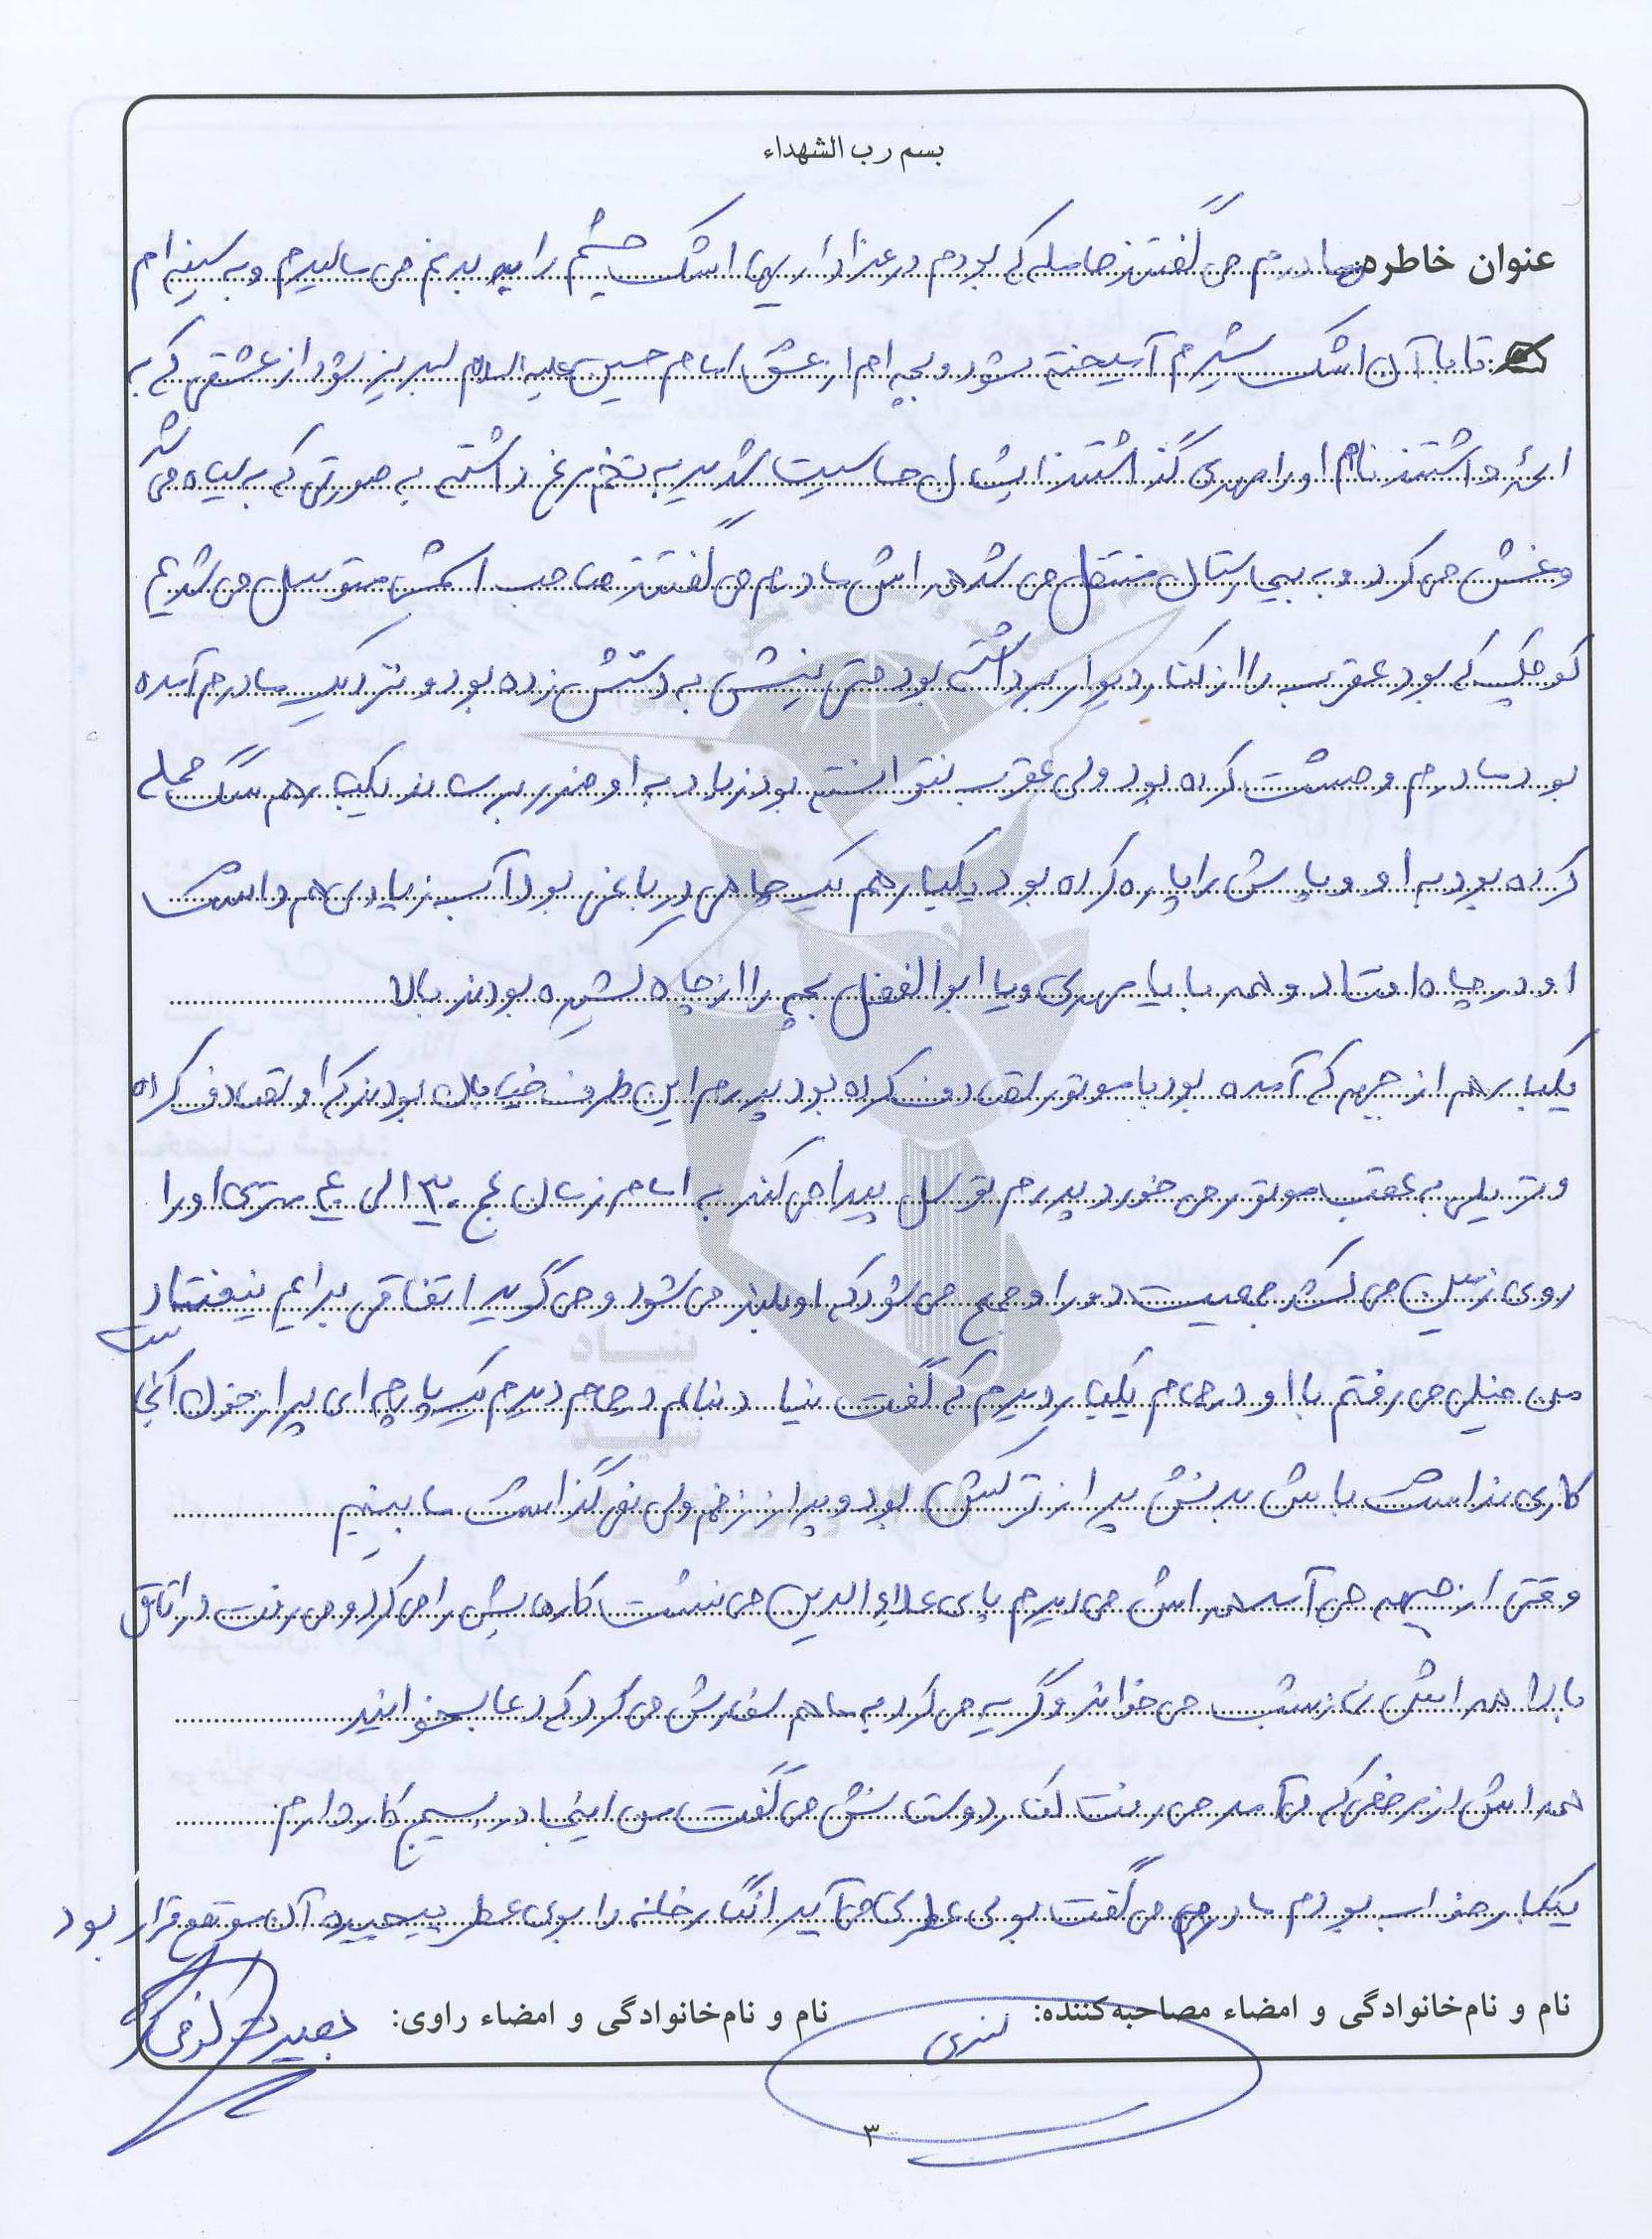 بسم رب الشهداء
عنوان خاطره: مادرم می گفتند حامله که بودم در عزاداریها اشک چشمم را به بدنم می مالیدم و به سینه ام
تا با آن اشک شیرم آمیخته شود و بچه ام از عشق امام حسین علیه السلام لبریز شود از عشقی که به
ائمه داشتند نام او را مهدی گذاشتند ایشان حساسیت شدید به تخم مرغ داشتند به صورتی که سیاه می شد
و غش می کرد و به بیمارستان منتقل می شد همه اش مادرم می گفتند صاحب اسمش متوسل می شدیم
کوچک که بود عقرب را از کنار دیوار برداشته بود حتی نیشش به دستش زده بود و نزدیک مادرم آمده
بود مادرم وحشت کرده بود ولی عقرب نتوانسته بود زیاد به او ضرر برساند یکبار هم سگ حمله
کرده بود به او و پاش را پاره کرده بود یکبار هم یک چاهی در باغی بود آب زیادی هم داشت
او در چاه افتاد و همه با یا مهدی و یا ابوالفضل بچه را از چاه کشیده بودند بالا
یکبار هم از جبهه که آمده بود با موتور تصادف کرده بود پدرم این طرف خیابان بودند که او تصادف کرده
و تریلی به عقب موتور می خورد پدرم توسل پیدا می کند به امام زمان عج ۳۰ الی ۴۰ متری او را
روی زمین می کشد جمعیت دور او جمع می شود که او بلند می شود و می گوید اتفاقی برایم نیفتاد
ست
من خیلی می رفتم با او در حمام یکبار دیدم که گفت نیا دنبالم در حمام دیدم یک پارچه ای پر از خون آنجا
کاری نداشت باش بدنش پر از ترکش بود و پر از زخم ولی نمی گذاشت ما ببینیم
وقتی از جبهه می آمد همه اش می دیدم پای علاءالدین می نشست کارهایش را می کرد و می رفت در اتاق
بالا همه اش نماز شب می خواند و گریه می کرد به ما هم سفارش می کرد که دعا بخوانید
همه اش از مرخصی که می آمد می رفت کنار دوستانش می گفت من اینجا در بسیج کار دارم
یکبار خواب بودم مادرم می گفت بوی عطری می آید انگار خانه را بوی عطر پیچیده آن موقع قرار بود
نام و نام‌خانوادگی و امضاء مصاحبه‌کننده:
نام و نام‌خانوادگی و امضاء راوی:
۳